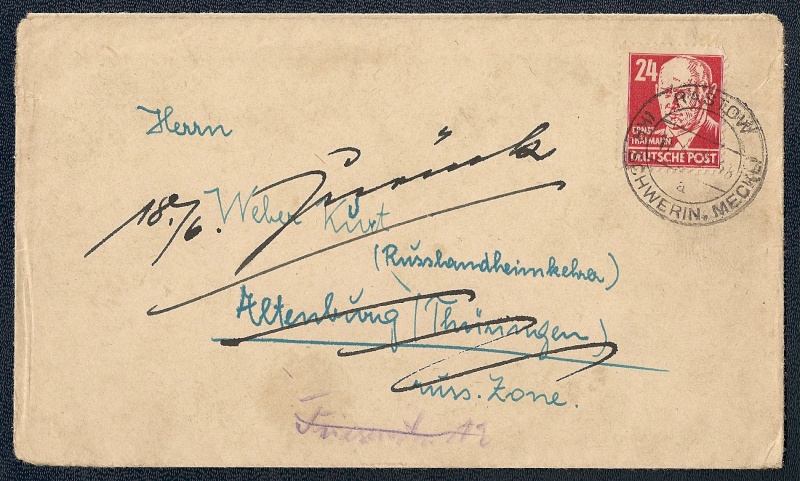 24
ERNST
THÄLMANN
DEUTSCHE POST
RASTOW
a
SCHWERIN, MECKL
Herrn
Zurück
18./6.
Weber Kurt
(Russlandheimkehrer)
Altenburg (Thüringen)
russ. Zone.
12